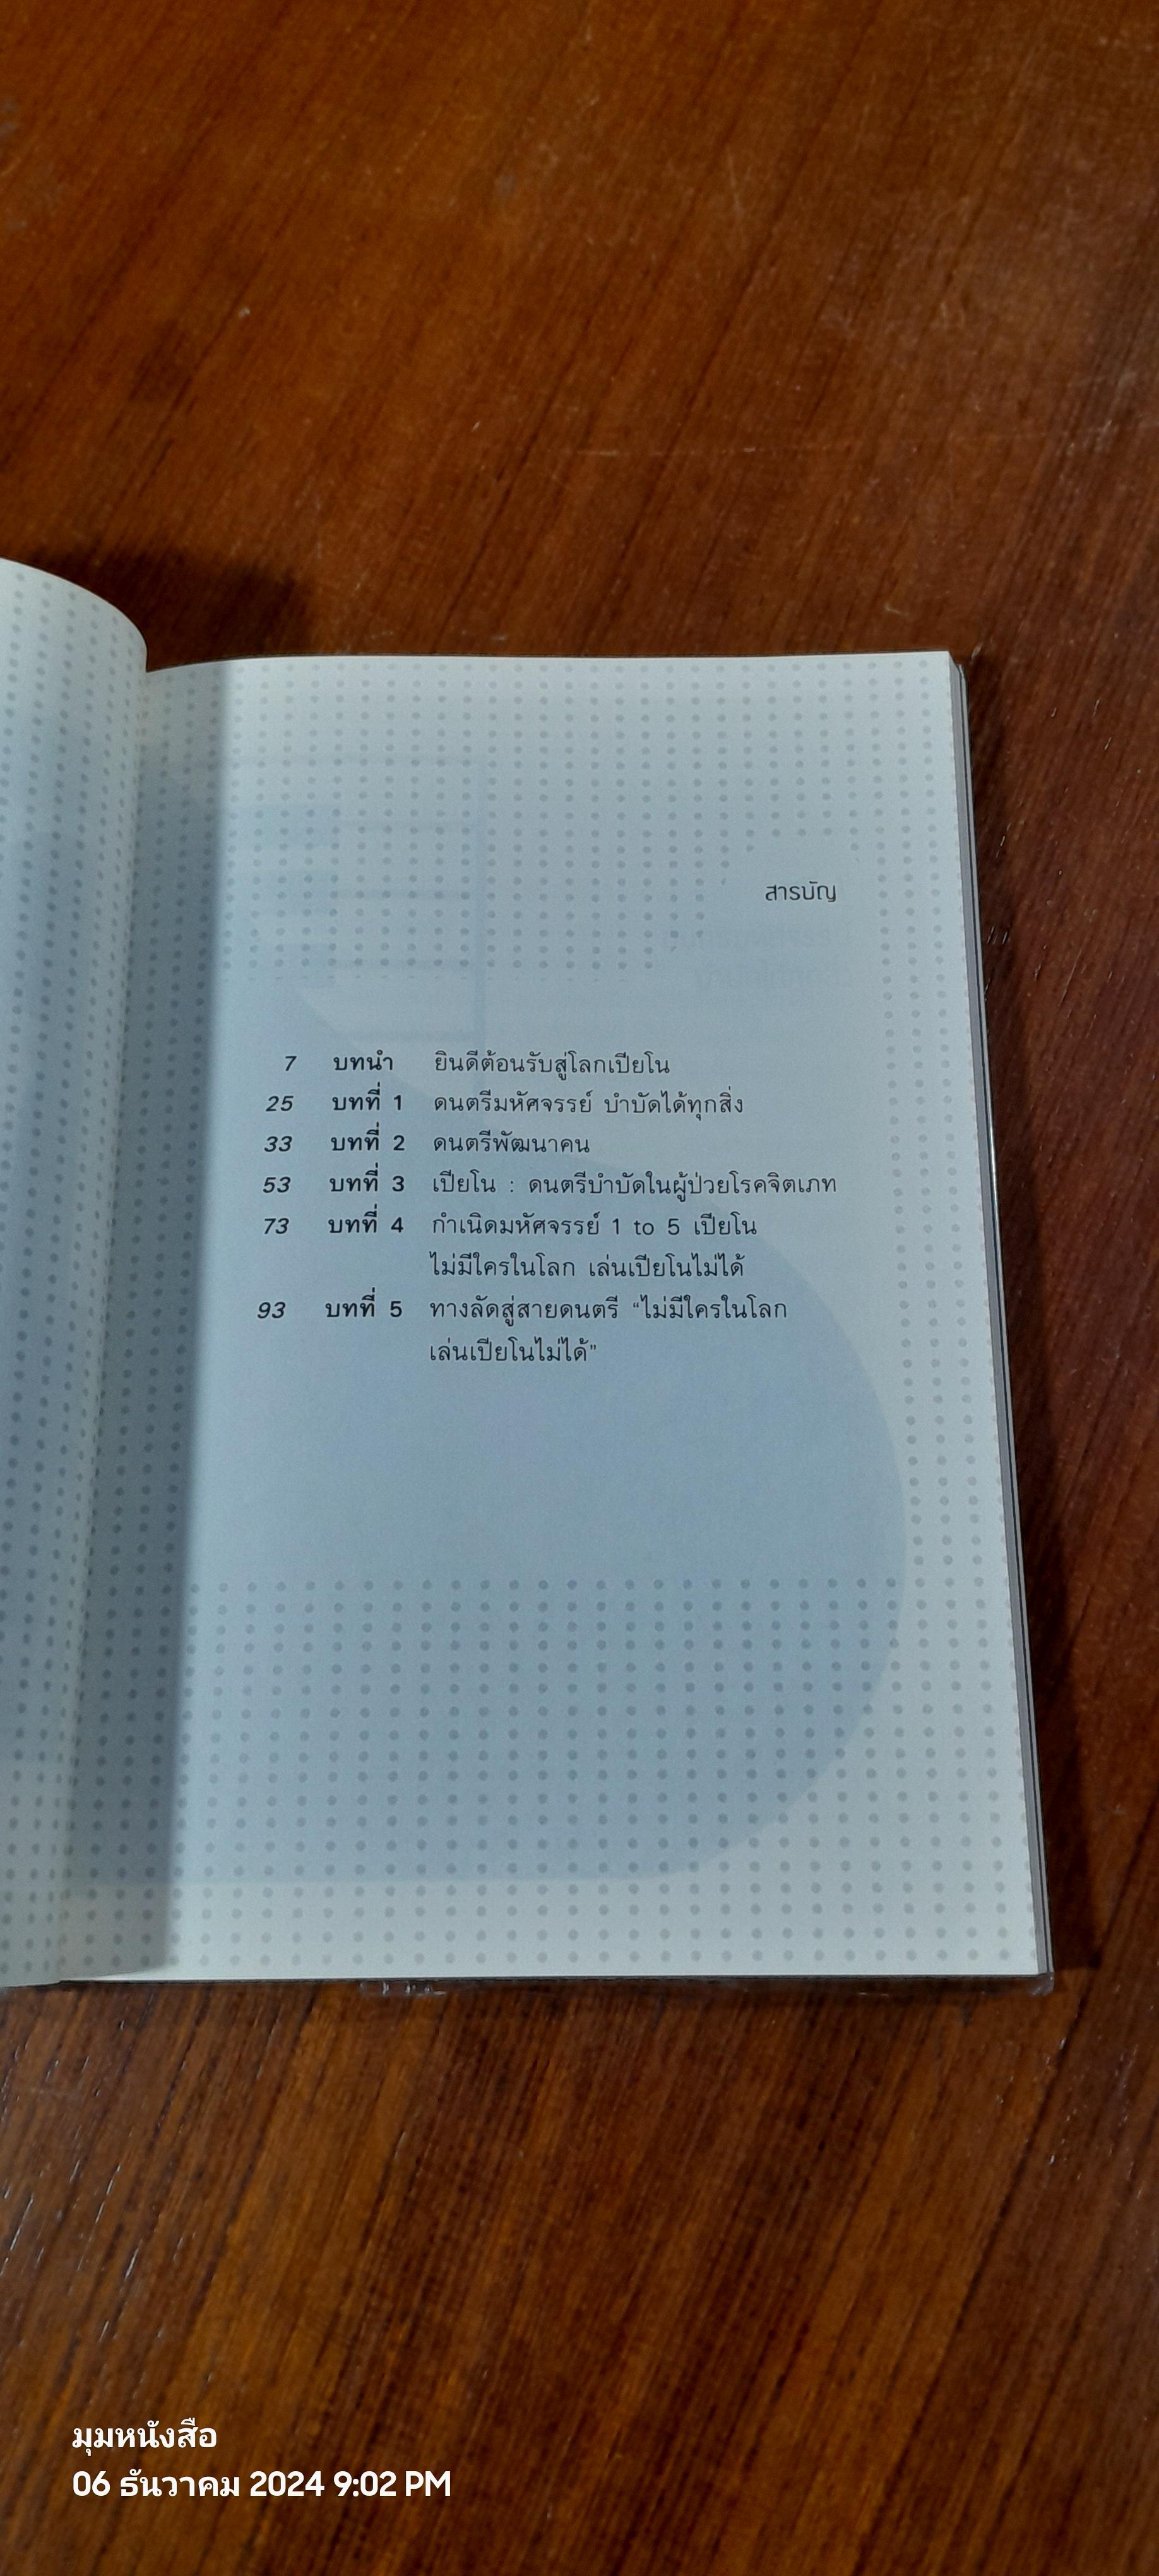 สารบัญ
7 บทนำ ยินดีต้อนรับสู่โลกเปียโน
25 บทที่ 1 ดนตรีมหัศจรรย์ บำบัดได้ทุกสิ่ง
33 บทที่ 2 ดนตรีพัฒนาคน
53 บทที่ 3 เปียโน : ดนตรีบำบัดในผู้ป่วยโรคจิตเภท
73 บทที่ 4 กำเนิดมหัศจรรย์ 1 to 5 เปียโน
ไม่มีใครในโลก เล่นเปียโนไม่ได้
93 บทที่ 5 ทางลัดสู่สายดนตรี “ไม่มีใครในโลก
เล่นเปียโนไม่ได้”
มุมหนังสือ
06 ธันวาคม 2024 9:02 PM